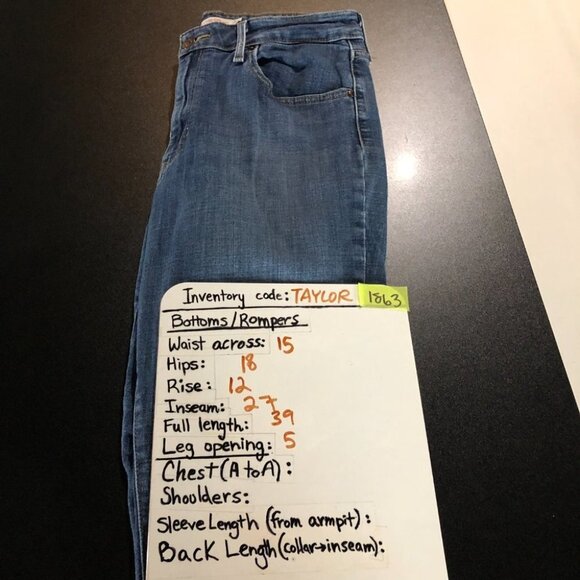 Inventory code: TAYLOR 1863
Bottoms/Rompers
Waist across: 15
Hips: 18
Rise: 12
Inseam: 27
Full length: 39
Leg opening: 5
Chest (A to A):
Shoulders:
Sleeve Length (from armpit):
Back Length (collar→inseam):